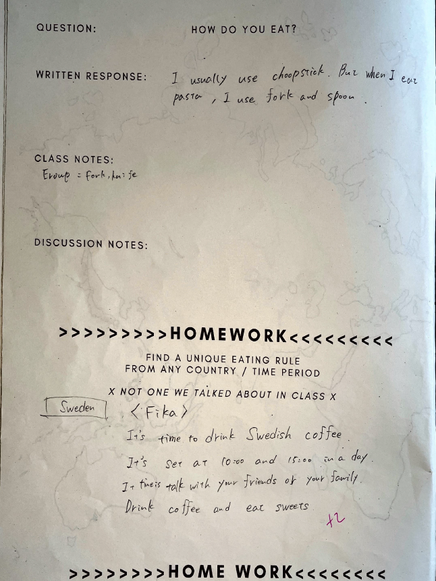 QUESTION: HOW DO YOU EAT?
WRITTEN RESPONSE: I usually use choopstick. But when I eat
pasta, I use fork and spoon.
CLASS NOTES:
Europ = fork, knife
DISCUSSION NOTES:
>>>>>>>>>HOMEWORK<<<<<<<<<
FIND A UNIQUE EATING RULE
FROM ANY COUNTRY / TIME PERIOD
X NOT ONE WE TALKED ABOUT IN CLASS X
Sweden <Fika>
It's time to drink Swedish coffee.
It's set at 10:00 and 15:00 in a day.
talk with your friends or your family.
Drink coffee and eat sweets
+2
>>>>>>>>>HOME WORK<<<<<<<<<